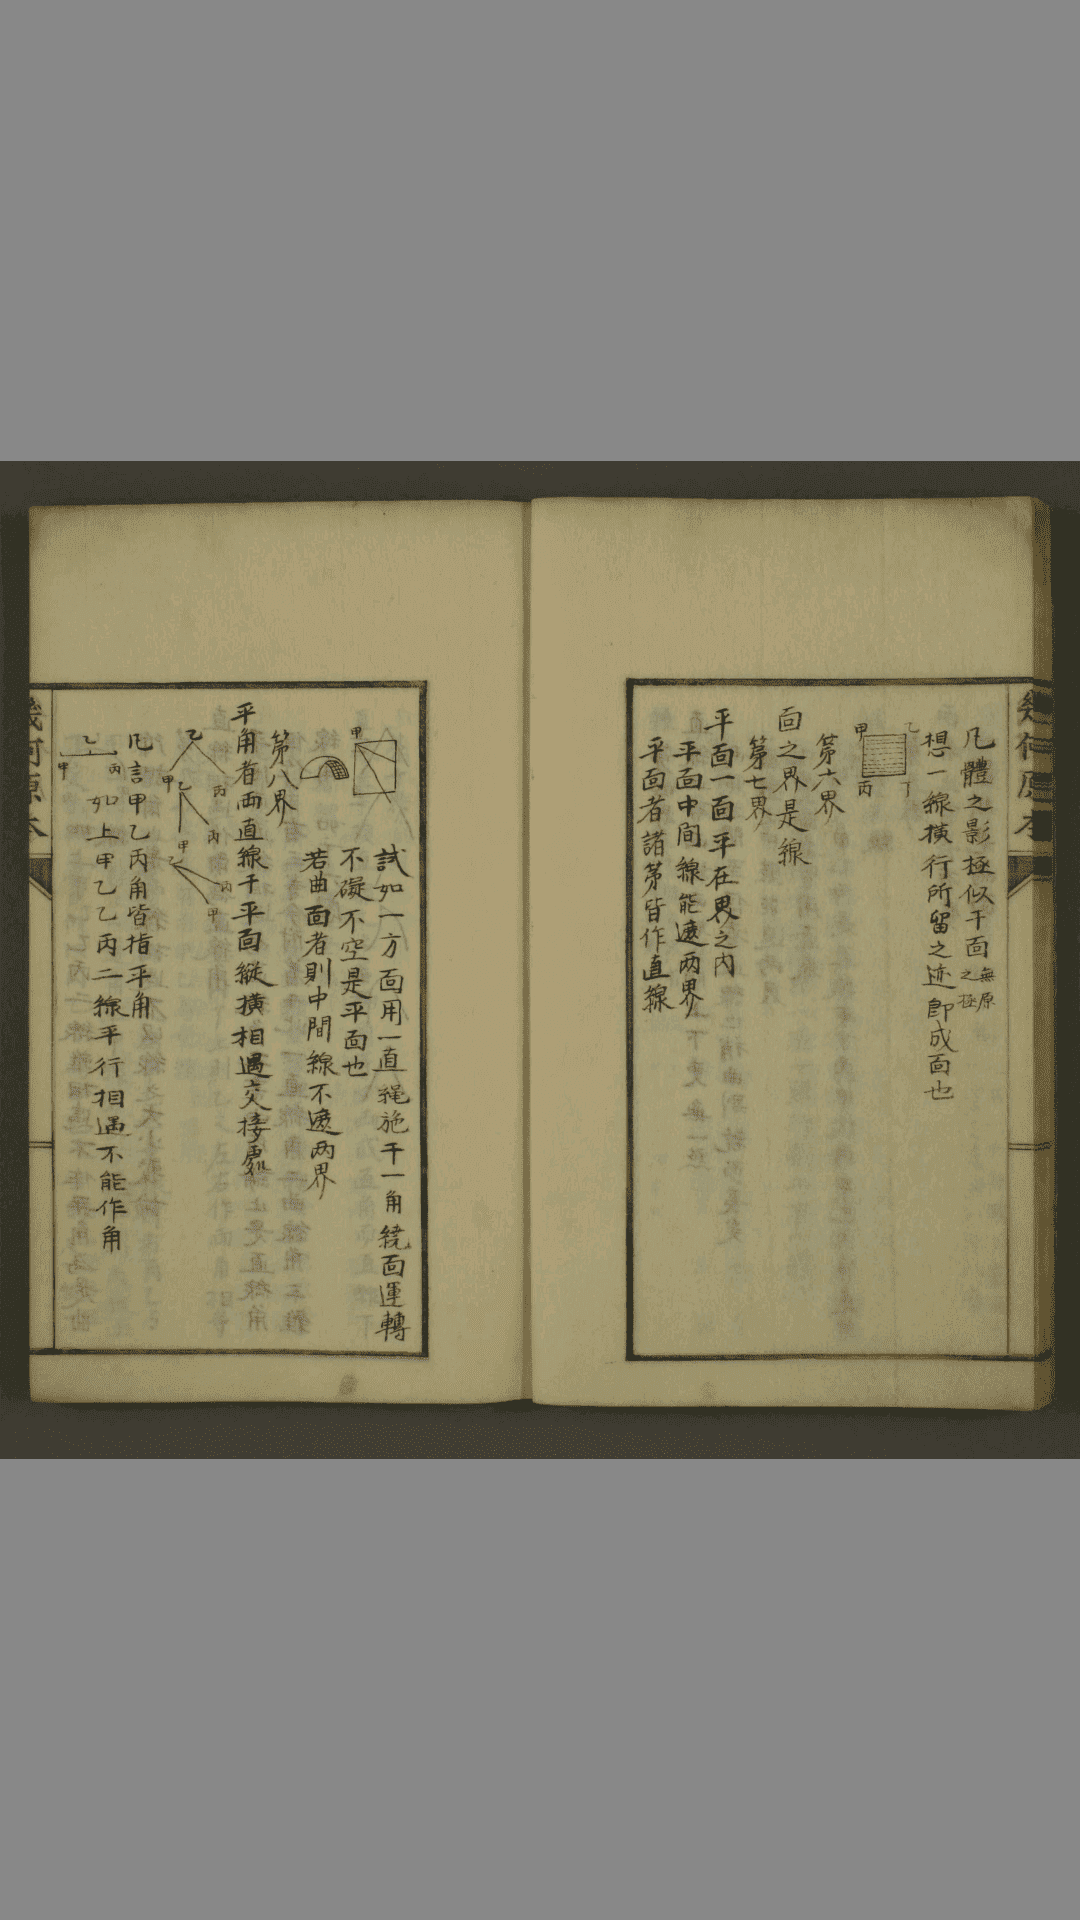 幾何原本
凡體之影極似于面無原之極
想一線橫行所留之迹即成面也
甲 乙
丙 丁
第六界
面之界是線
第七界
平面一面平在界之内
平面中間線能遮两界
平面者諸苐皆作直線
甲
試如一方面用一直䋲施于一角繞面運轉
不礙不空是平面也
若曲面者則中間線不遮两界
第八界
平角者兩直線于平面縱横相遇交接處
乙 甲 丙
乙 甲 丙
乙 丙 甲
凡言甲乙丙角皆指平角
乙 甲 丙
如上甲乙乙丙二線平行相遇不能作角
幾何原本